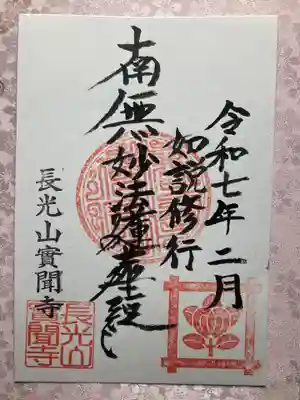 令和七年 二月
如説修行
南無妙法蓮華経
長光山實聞寺
長光山
實聞寺